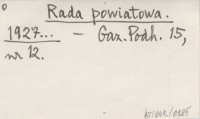 Rada powiatowa.
1927... — Gaz. Podh. 15,
nr 12.